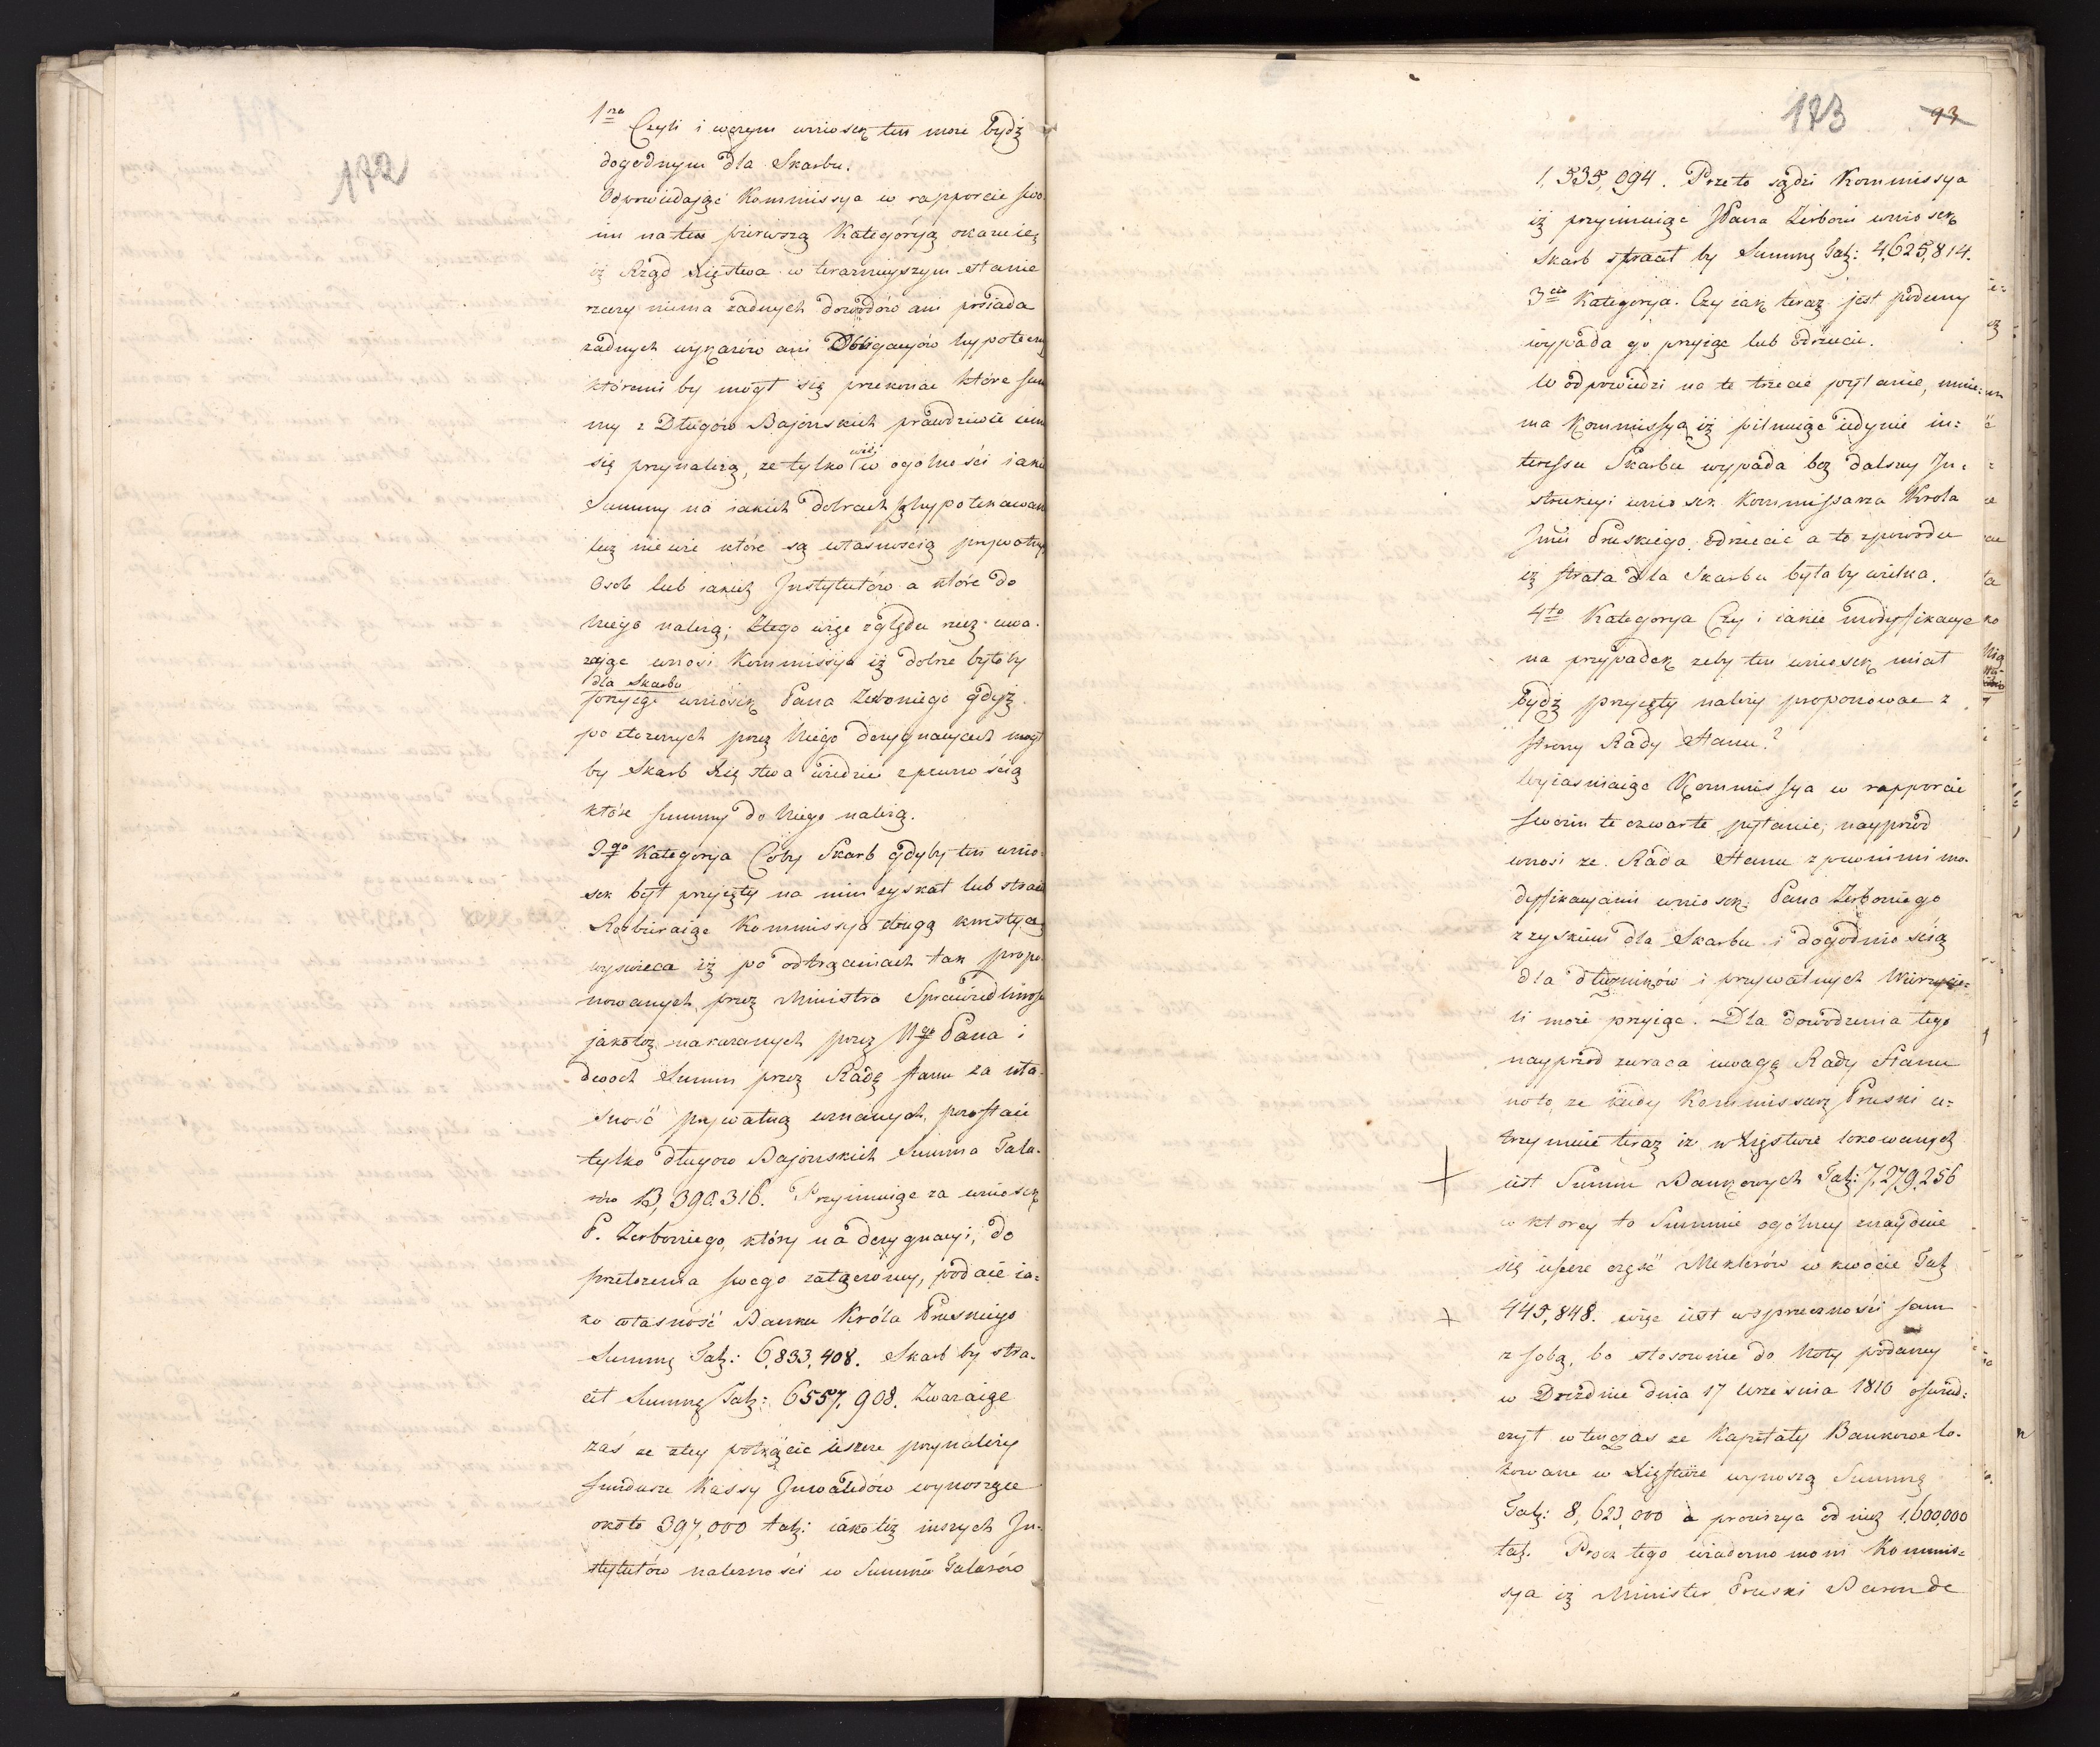 172
1mo Czyli i w czym wniosek ten może bydź
dogodnym dla Skarbu.
Odpowiadaiąc Kommissya w rapporcie swo
im na tęn pierwszą Kategoryą okazuie,
iż Rząd Xięstwa w teraznieyszym stanie
rzeczy niema żadnych dowodów ani posiada
żadnych wykazów ani Obligacyów hypoteczn
któremi by mógł się przekonać które Sum
my z Długów Bajońskich prawdziwie iem
się przynależą, że tylko wie w ogólności iakie
Summy na iakich dobrach są hypotekowane
lecz niewie które są własnością prywatny
Osob lub iakich Instytutów a które do
Niego należą; Z tego więc względu rzecz uwa-
żaiąc wnosi Kommissya iż dobrze byłoby
dla Skarbu
przyiąć wniosek Pana Zerboniego gdyż
po złożonych przez Niego dezygnacyach mógł
by Skarb Xięstwa wiedzieć z pewnością
które Summy do Niego należą.
2ga Kategorya Coby Skarb gdyby ten wnio-
sek był przyięty na nim zyskał lub stracił
Rozbieraiąc Kommissya drugą kwestyą
wyswieca iż po odtrąceniach tak propo-
nowanych przez Ministra Sprawiedliwośc
jakoteż nakazanych przez Nygo Pana i
dwoch Summ przez Radę stanu za wła-
sność prywatną uznanych, pozostaie
tylko długow Bajońskich Summa Tala-
rów 13,390.316. Przyimuiąc za wniosek
P. Zerboniego, który na dezygnacyi, do
przełożenia swego załączoney, podaie ia-
ko własność Banku Króla Pruskiego
Summę Tal: 6,833,408. Skarb by stra-
cił Summę Tal: 6557,908. Zważaiąc
zaś że z tey potrącić ieszcze przynależy
fundusze Kassy Inwalidów wynoszące
około 397,000 tal: iako też inszych In-
stytutów należności w Summie Talarów
173 93
1,535,094. Przeto sądzi Kommissya
iż przyimuiąc JPana Zerboni wniosek
Skarb stracił by Summę Tal: 4,625,814.
3cia Kategorya. Czy iak teraz jest podany
wypada go przyiąć lub odrzucić.
W odpowiedzi na te trzecie pytanie, mnie:
ma Kommissya iż pilnuiąc iedynie in:
teressu Skarbu wypada bez dalszey In:
strukcyi wniosek Kommissarza Krola
Jmci Pruskiego odrzucić a to z powodu
iż strata dla Skarbu byłaby wielka.
4to Kategorya Czy i iakie modyfikacye
na przypadek żeby ten wniosek miał
bydź przyięty należy proponować z
strony Rady Stanu?
Wyiasniaiąc Kommissya w rapporcie
swoim te czwarte pytanie, nayprzód
wnosi że Rada Stanu z pewnimi mo-
dyfikacyami wniosek Pana Zerboniego
z zyskiem dla Skarbu i dogodnością
dla dłużników i prywatnych Wierzycie:
li może przyiąć. Dla dowodzenia tego
nayprzód zwraca uwagę Rady Stanu
na to, że kiedy Kommissarz Pruski u:
trzymuie teraz iż w Xięstwie lokowanych
iest Summ Bankowych Tal: 7,279,256
w ktorey to Summie ogólney znayduie
się ieszcze część Meklerów w kwocie Tal
445,848. więc iest w sprzeczności sam
z sobą, bo stosownie do Noty podaney
w Dreźdnie dnia 17 Września 1810 oświad:
czył wtenczas że Kapitały Bankowe lo-
kowane w Xięstwie wynoszą Summę
Tal: 8,623,000 a prowizya od nich 1,600,000
tal. Procz tego wiadomo moni Kommis:
sya iż Minister Pruski Baron de